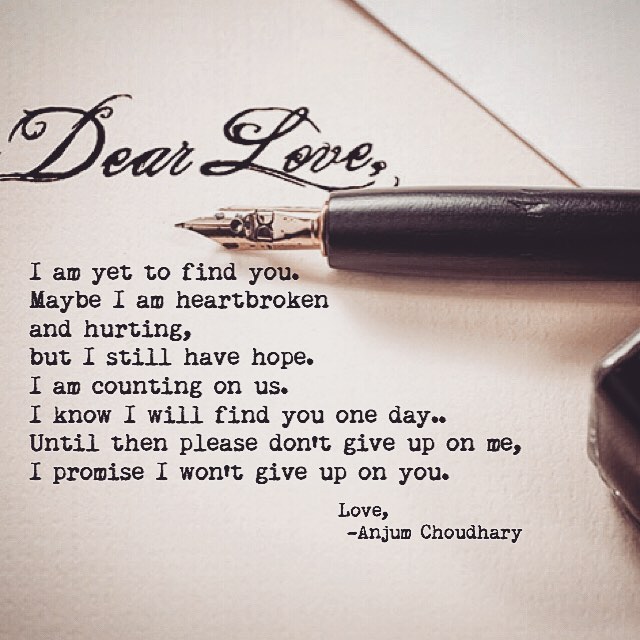 Dear Love,
I am yet to find you.
Maybe I am heartbroken
and hurting,
but I still have hope.
I am counting on us.
I know I will find you one day..
Until then please don't give up on me,
I promise I won't give up on you.
Love,
-Anjum Choudhary